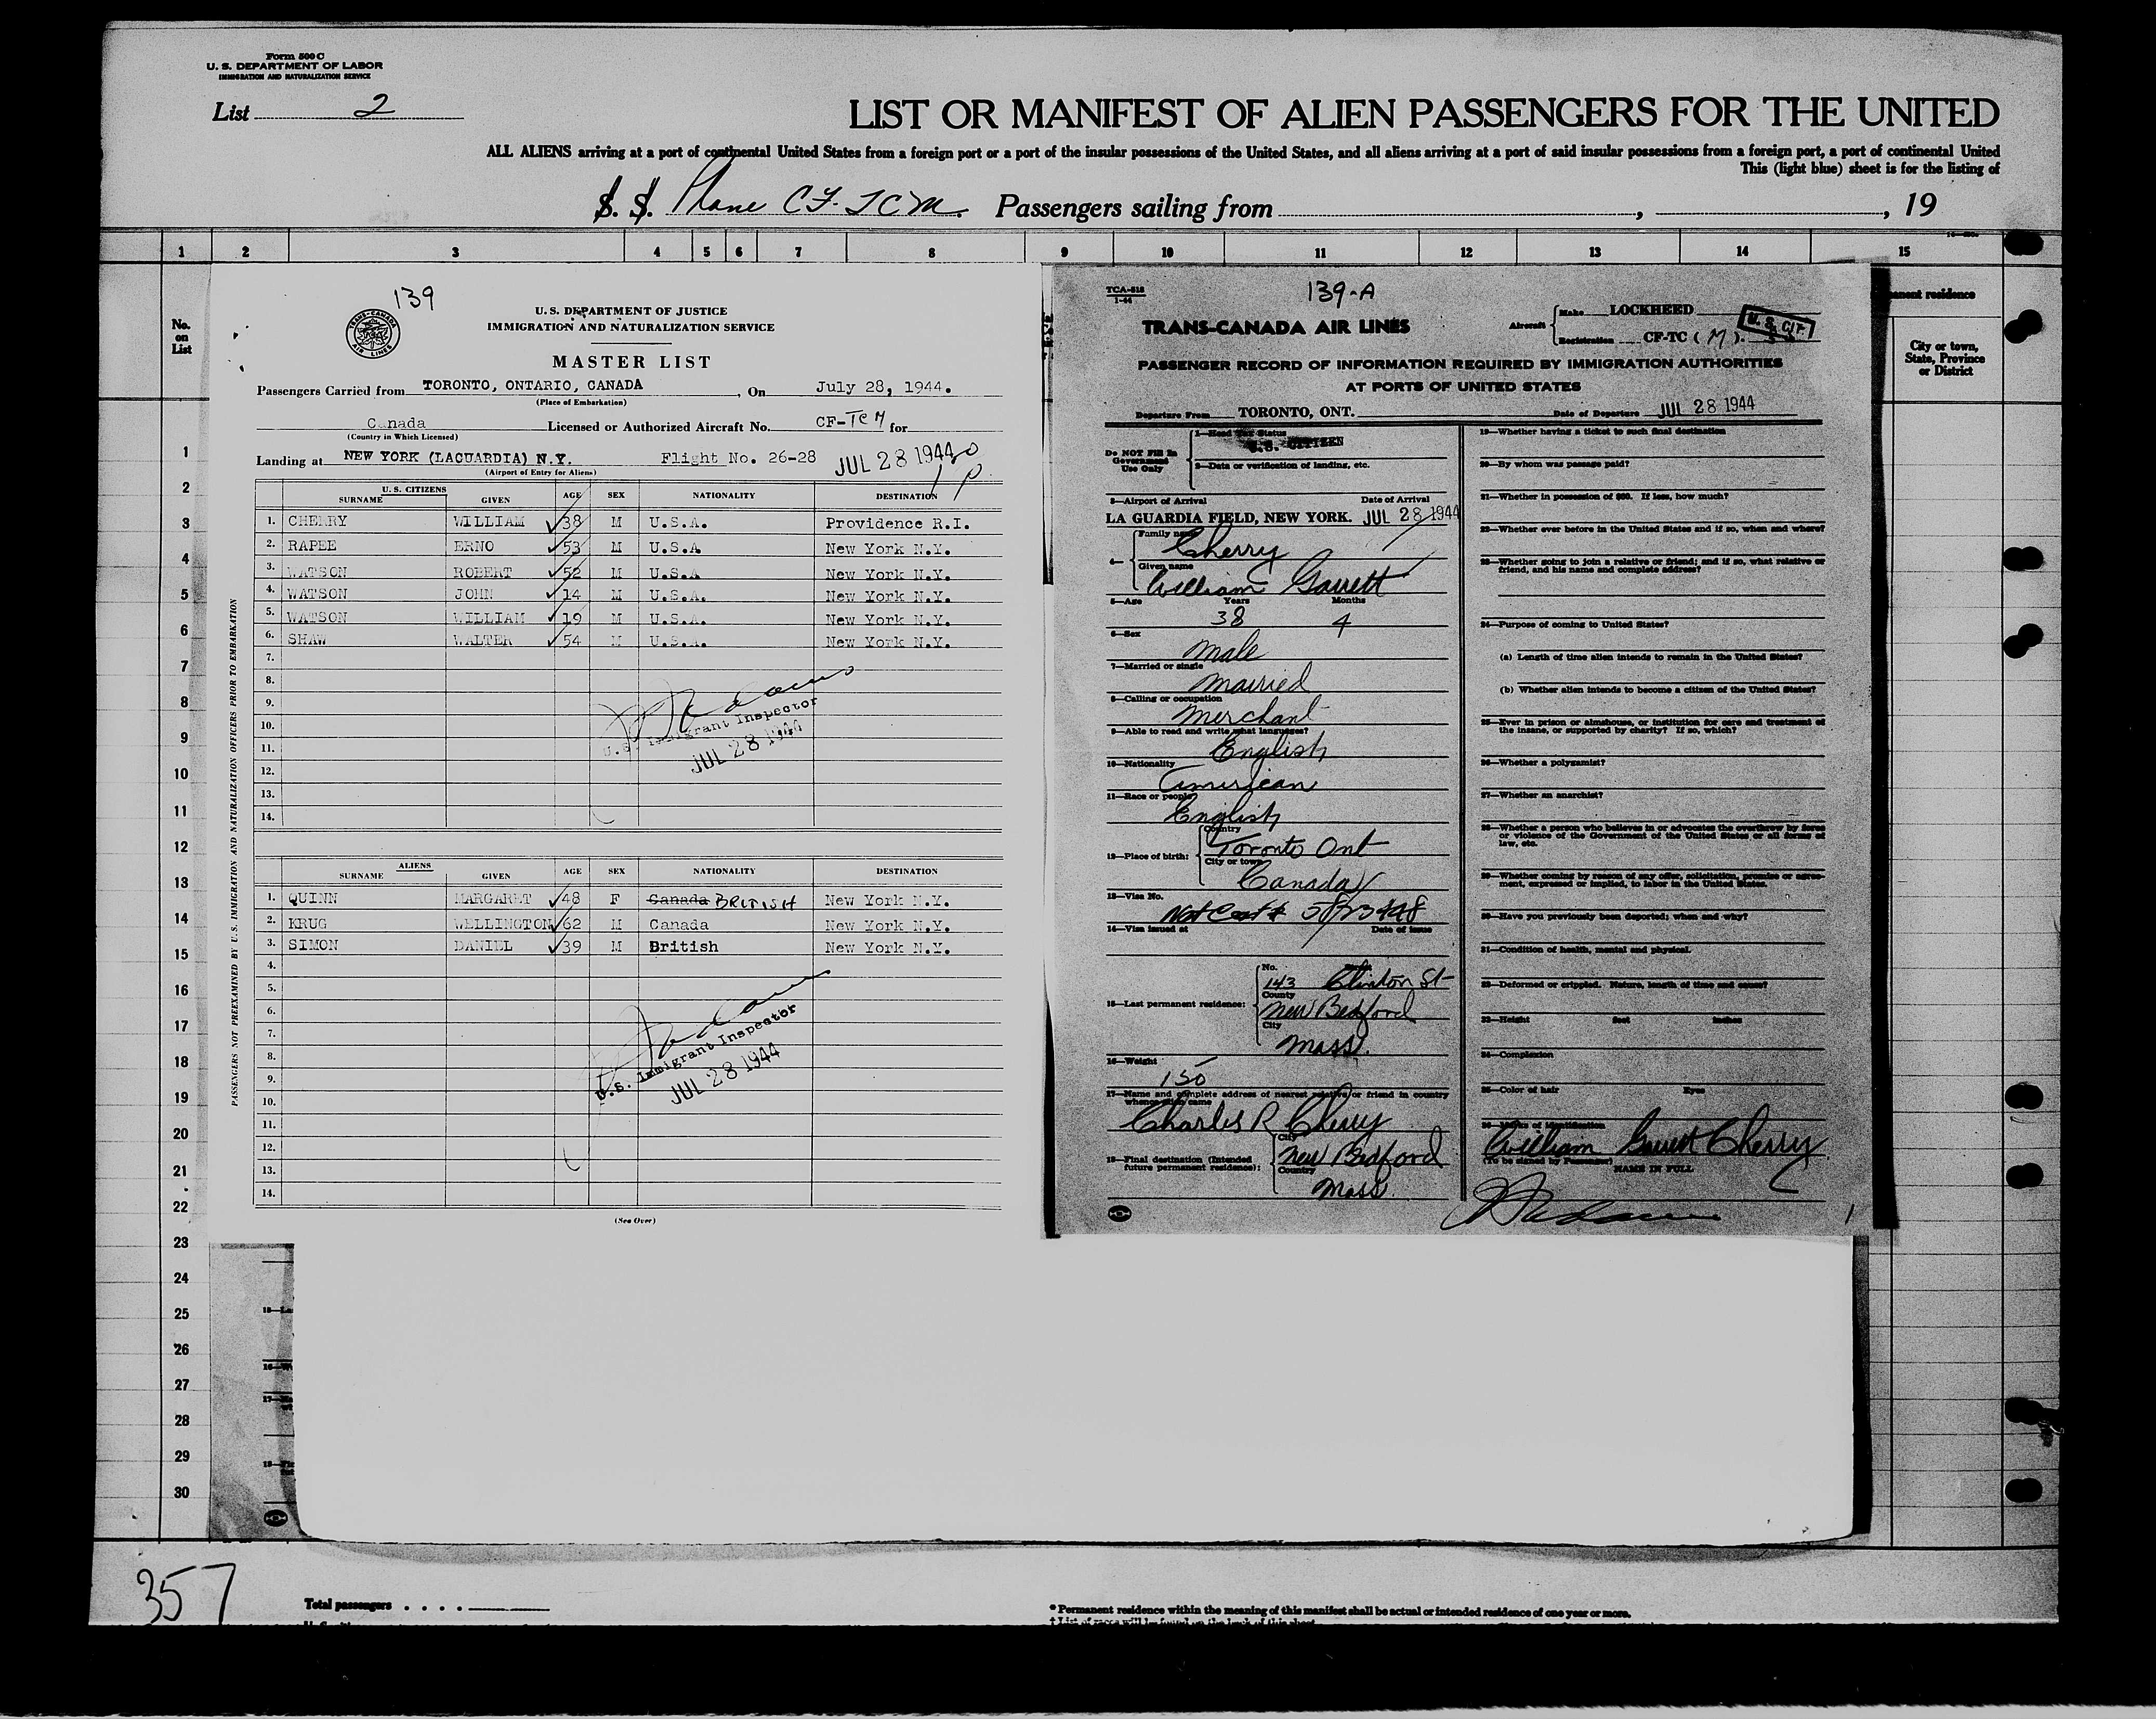 Form 500 C
U. S. DEPARTMENT OF LABOR
IMMIGRATION AND NATURALIZATION SERVICE
List 2
LIST OR MANIFEST OF ALIEN PASSENGERS FOR THE UNITED
ALL ALIENS arriving at a port of continental United States from a foreign port or a port of the insular possessions of the United States, and all aliens arriving at a port of said insular possessions from a foreign port, a port of continental United
This (light blue) sheet is for the listing of
S. S. Plane CF-TCM. Passengers sailing from , , 19
1 2 3 4 5 6 7 8 9 10 11 12 13 14 15
No. on List
1
2
3
4
5
6
7
8
9
10
11
12
13
14
15
16
17
18
19
20
21
22
23
24
25
26
27
28
29
30
139
TRANS-CANADA AIR LINES
U. S. DEPARTMENT OF JUSTICE
IMMIGRATION AND NATURALIZATION SERVICE
MASTER LIST
Passengers Carried from TORONTO, ONTARIO, CANADA, On July 28, 1944.
(Place of Embarkation)
Canada Licensed or Authorized Aircraft No. CF-TCM for
(Country in Which Licensed)
Landing at NEW YORK (LAGUARDIA) N.Y. Flight No. 26-28 JUL 28 1944
(Airport of Entry for Aliens)
U. S. CITIZENS
SURNAME GIVEN AGE SEX NATIONALITY DESTINATION
1. CHERRY WILLIAM 38 M U.S.A. Providence R.I.
2. RAPEE ERNO 53 M U.S.A New York N.Y.
3. WATSON ROBERT 52 M U.S.A New York N.Y.
4. WATSON JOHN 14 M U.S.A. New York N.Y.
5. WATSON WILLIAM 19 M U.S.A. New York N.Y.
6. SHAW WALTER 54 M U.S.A. New York N.Y.
7.
8.
9.
10.
11.
12.
13.
14.
U.S. Immigrant Inspector
JUL 28 1944
ALIENS
SURNAME GIVEN AGE SEX NATIONALITY DESTINATION
1. QUINN MARGARET 48 F Canada BRITISH New York N.Y.
2. KRUG WELLINGTON 62 M Canada New York N.Y.
3. SIMON DANIEL 39 M British New York N.Y.
4.
5.
6.
7.
8.
9.
10.
11.
12.
13.
14.
U.S. Immigrant Inspector
JUL 28 1944
(See Over)
PASSENGERS NOT PREEXAMINED BY U.S. IMMIGRATION AND NATURALIZATION OFFICERS PRIOR TO EMBARKATION
TCA-518
1-44
139-A
TRANS-CANADA AIR LINES
Aircraft Make LOCKHEED
Registration CF-TC (M).
U. S. CIT.
PASSENGER RECORD OF INFORMATION REQUIRED BY IMMIGRATION AUTHORITIES
AT PORTS OF UNITED STATES
Departure From TORONTO, ONT. Date of Departure JUL 28 1944
Do NOT Fill In Government Use Only
1—Head Tax Status
U.S. CITIZEN
2—Data or verification of landing, etc.
3—Airport of Arrival Date of Arrival
LA GUARDIA FIELD, NEW YORK. JUL 28 1944
4— Family name
Cherry
Given name
William Garrett
5—Age Years Months
38 4
6—Sex
Male
7—Married or single
Married
8—Calling or occupation
Merchant
9—Able to read and write what languages?
English
10—Nationality
American
11—Race or people
English
12—Place of birth: Country
Toronto Ont
City or town
Canada
13—Visa No.
14—Visa issued at Date of issue
15—Last permanent residence: No. 143 Clinton St
County
New Bedford
City
Mass.
16—Weight
150
17—Name and complete address of nearest relative or friend in country
whence alien came
Charles R Cherry
18—Final destination (Intended
future permanent residence): City New Bedford
Country
Mass.
19—Whether having a ticket to such final destination
20—By whom was passage paid?
21—Whether in possession of $50. If less, how much?
22—Whether ever before in the United States and if so, when and where?
23—Whether going to join a relative or friend; and if so, what relative or
friend, and his name and complete address?
24—Purpose of coming to United States?
(a) Length of time alien intends to remain in the United States?
(b) Whether alien intends to become a citizen of the United States?
25—Ever in prison or almshouse, or institution for care and treatment of
the insane, or supported by charity? If so, which?
26—Whether a polygamist?
27—Whether an anarchist?
28—Whether a person who believes in or advocates the overthrow by force
or violence of the Government of the United States or all forms of
law, etc.
29—Whether coming by reason of any offer, solicitation, promise or agree-
ment, expressed or implied, to labor in the United States.
30—Have you previously been deported; when and why?
31—Condition of health, mental and physical.
32—Deformed or crippled. Nature, length of time and cause?
33—Height feet inches
34—Complexion
35—Color of hair Eyes
36—Marks of identification
William Garrett Cherry
(To be signed by Passenger) NAME IN FULL
permanent residence
City or town,
State, Province
or District
357
Total passengers
* Permanent residence within the meaning of this manifest shall be actual or intended residence of one year or more.
† List of races will be found on the back of this sheet.